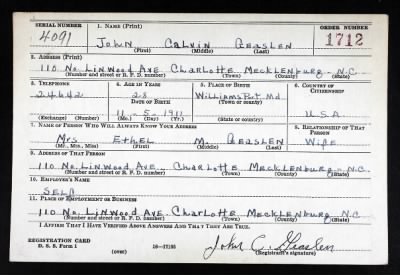 SERIAL NUMBER 1. NAME (Print) ORDER NUMBER
4091 John Calvin Geaslen 1712
(First) (Middle) (Last)
2. ADDRESS (Print)
110 No. Linwood Ave. Charlotte Mecklenburg N.C.
(Number and street or R. F. D. number) (Town) (County) (State)
3. TELEPHONE 4. AGE IN YEARS 5. PLACE OF BIRTH 6. COUNTRY OF CITIZENSHIP
24642 28 WilliamsPort Md.
DATE OF BIRTH (Town or county)
11-5-1911 U.S.A
(Exchange) (Number) (Mo.) (Day) (Yr.) (State or country)
7. NAME OF PERSON WHO WILL ALWAYS KNOW YOUR ADDRESS 8. RELATIONSHIP OF THAT PERSON
Mrs Ethel M. Geaslen Wife
(Mr., Mrs., Miss) (First) (Middle) (Last)
9. ADDRESS OF THAT PERSON
110 No. Linwood Ave. Charlotte Mecklenburg N.C.
(Number and street or R. F. D. number) (Town) (County) (State)
10. EMPLOYER'S NAME
SELF
11. PLACE OF EMPLOYMENT OR BUSINESS
110 No. Linwood Ave. Charlotte Mecklenburg N.C.
(Number and street or R. F. D. number) (Town) (County) (State)
I AFFIRM THAT I HAVE VERIFIED ABOVE ANSWERS AND THAT THEY ARE TRUE.
REGISTRATION CARD
D. S. S. Form 1 (over) 16-17105 John C. Geaslen
(Registrant's signature)